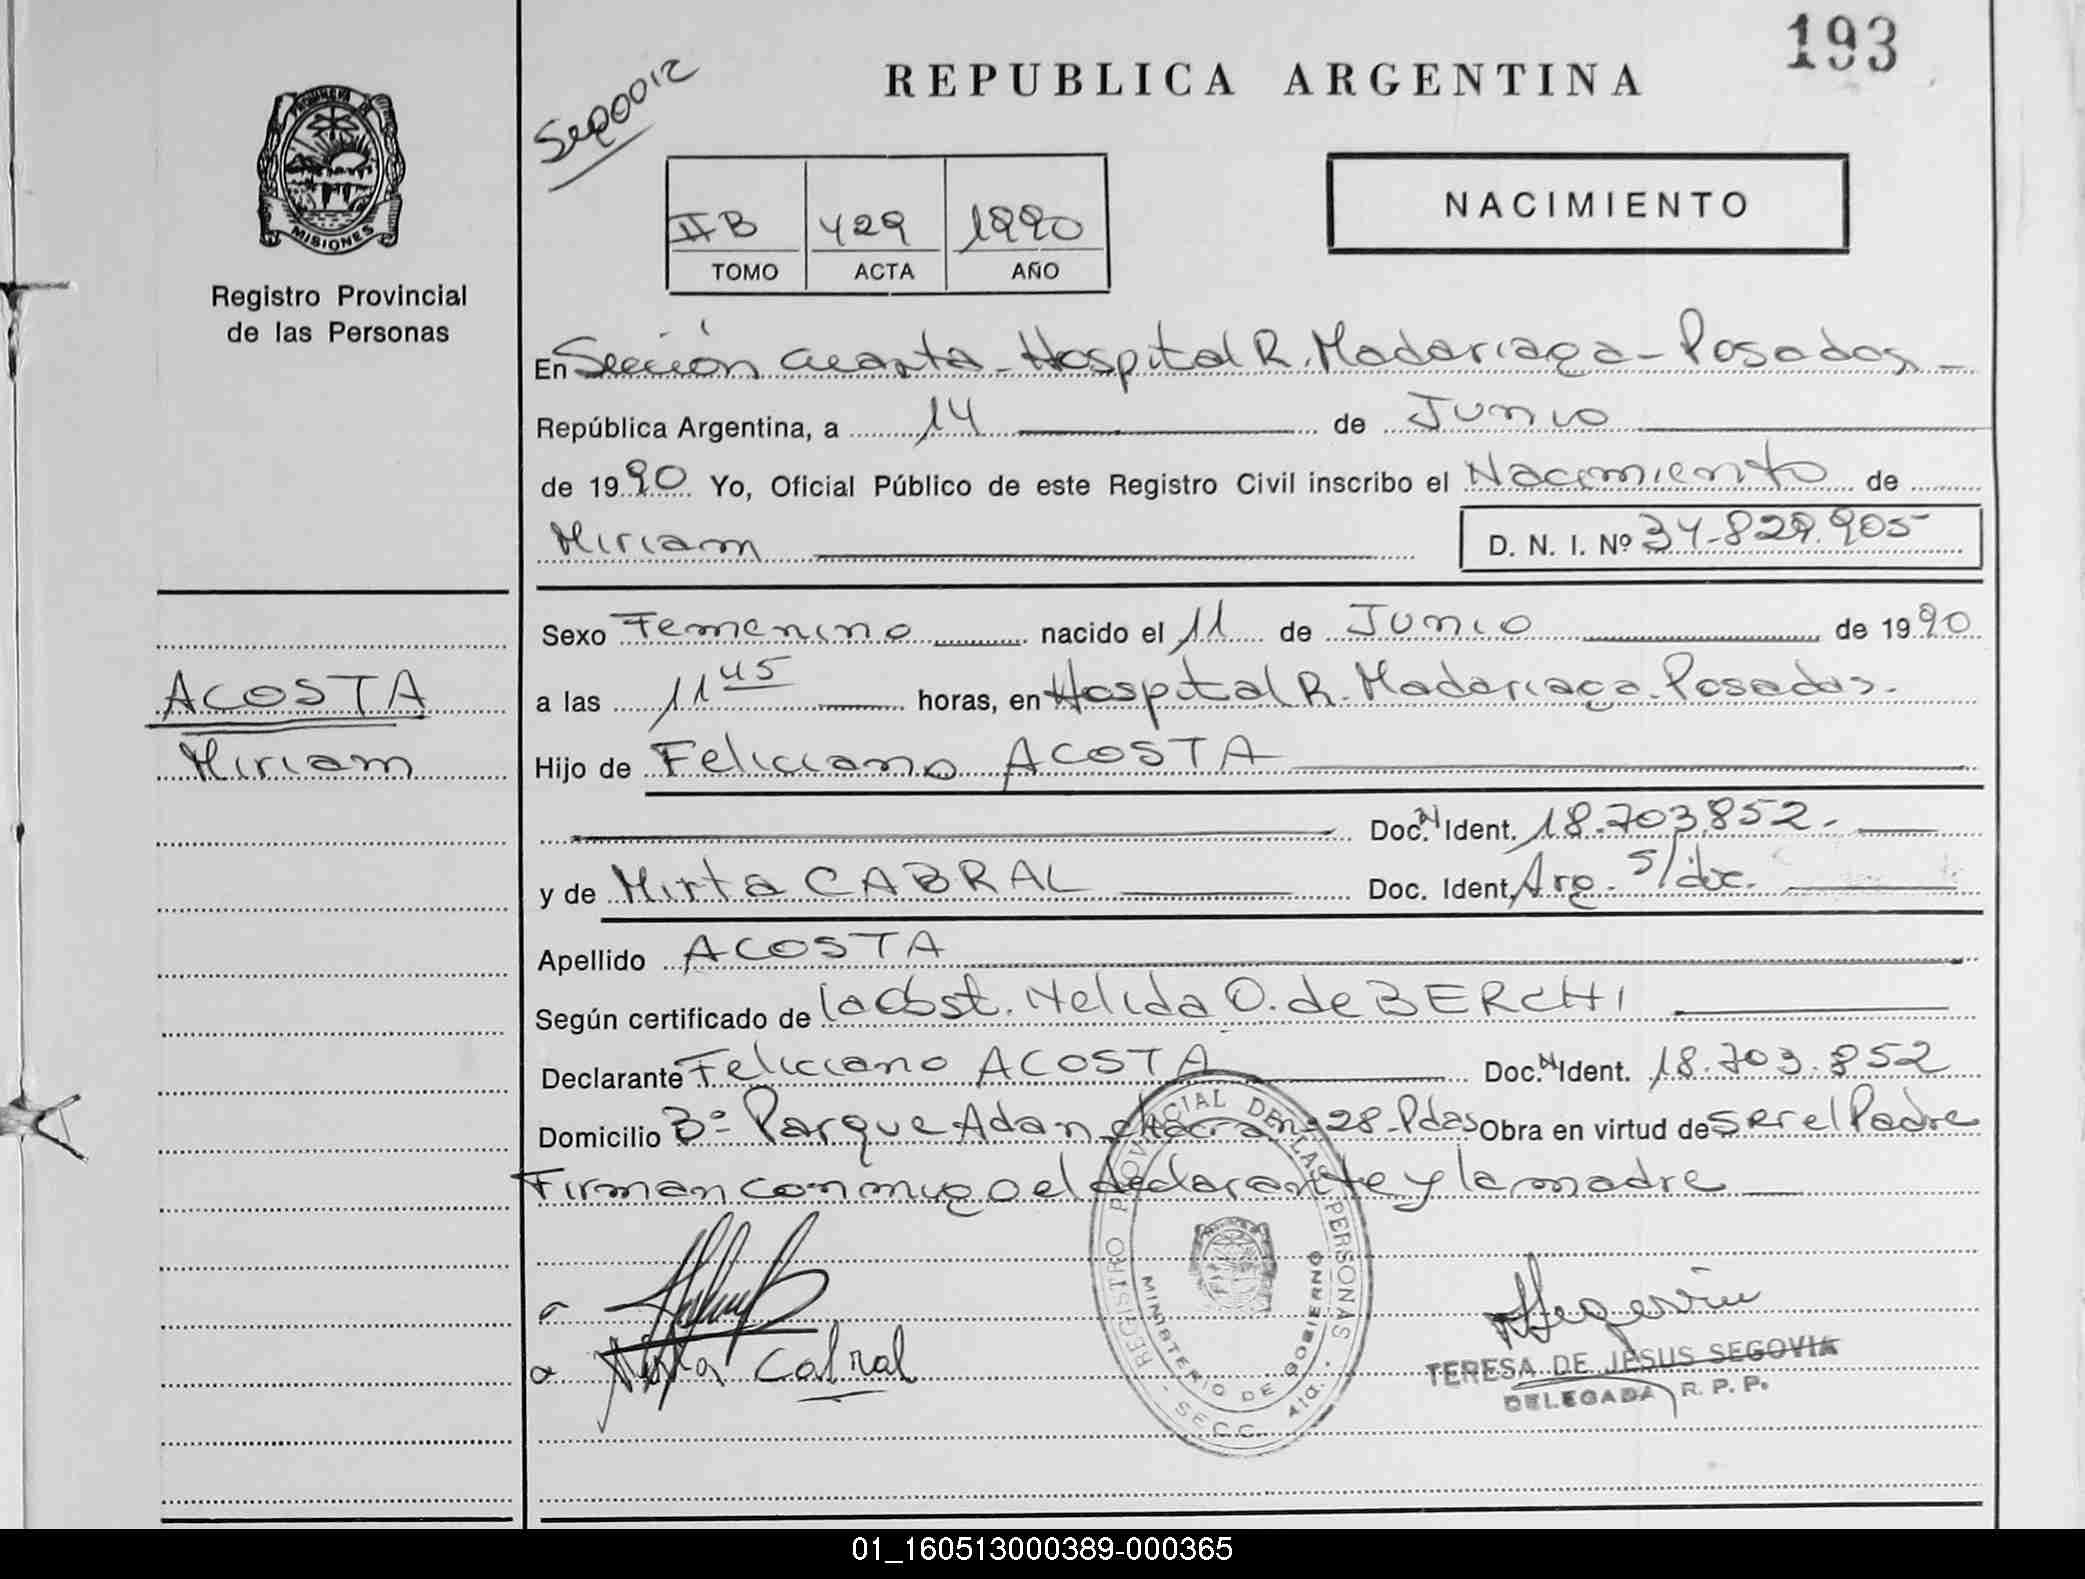 193
Seq0012
REPUBLICA ARGENTINA
PROVINCIA DE
MISIONES
Registro Provincial
de las Personas
II B 429 1990
TOMO ACTA AÑO
NACIMIENTO
En Sección cuarta - Hospital R. Madariaga - Posadas -
República Argentina, a 14 de Junio
de 1990 Yo, Oficial Público de este Registro Civil inscribo el Nacimiento de
Miriam D. N. I. Nº 34.829.905
Sexo Femenino nacido el 11 de Junio de 1990
ACOSTA
Miriam
a las 11 45 horas, en Hospital R. Madariaga. Posadas.
Hijo de Feliciano ACOSTA
Doc. N Ident. 18.703.852.
y de Mirta CABRAL Doc. Ident. Arg. s/doc.
Apellido ACOSTA
Según certificado de la Obst. Nelida O. de BERCHI
Declarante Feliciano ACOSTA Doc. N Ident. 18.703.852
Domicilio Bº Parque Adan chacra nº 28 - Pdas Obra en virtud de ser el Padre
Firman conmigo el declarante y la madre
Mirta Cabral
REGISTRO PROVINCIAL DE LAS PERSONAS
MINISTERIO DE GOBIERNO
- SECC. 4ta. -
Segovia
TERESA DE JESUS SEGOVIA
DELEGADA R. P. P.
01_160513000389-000365